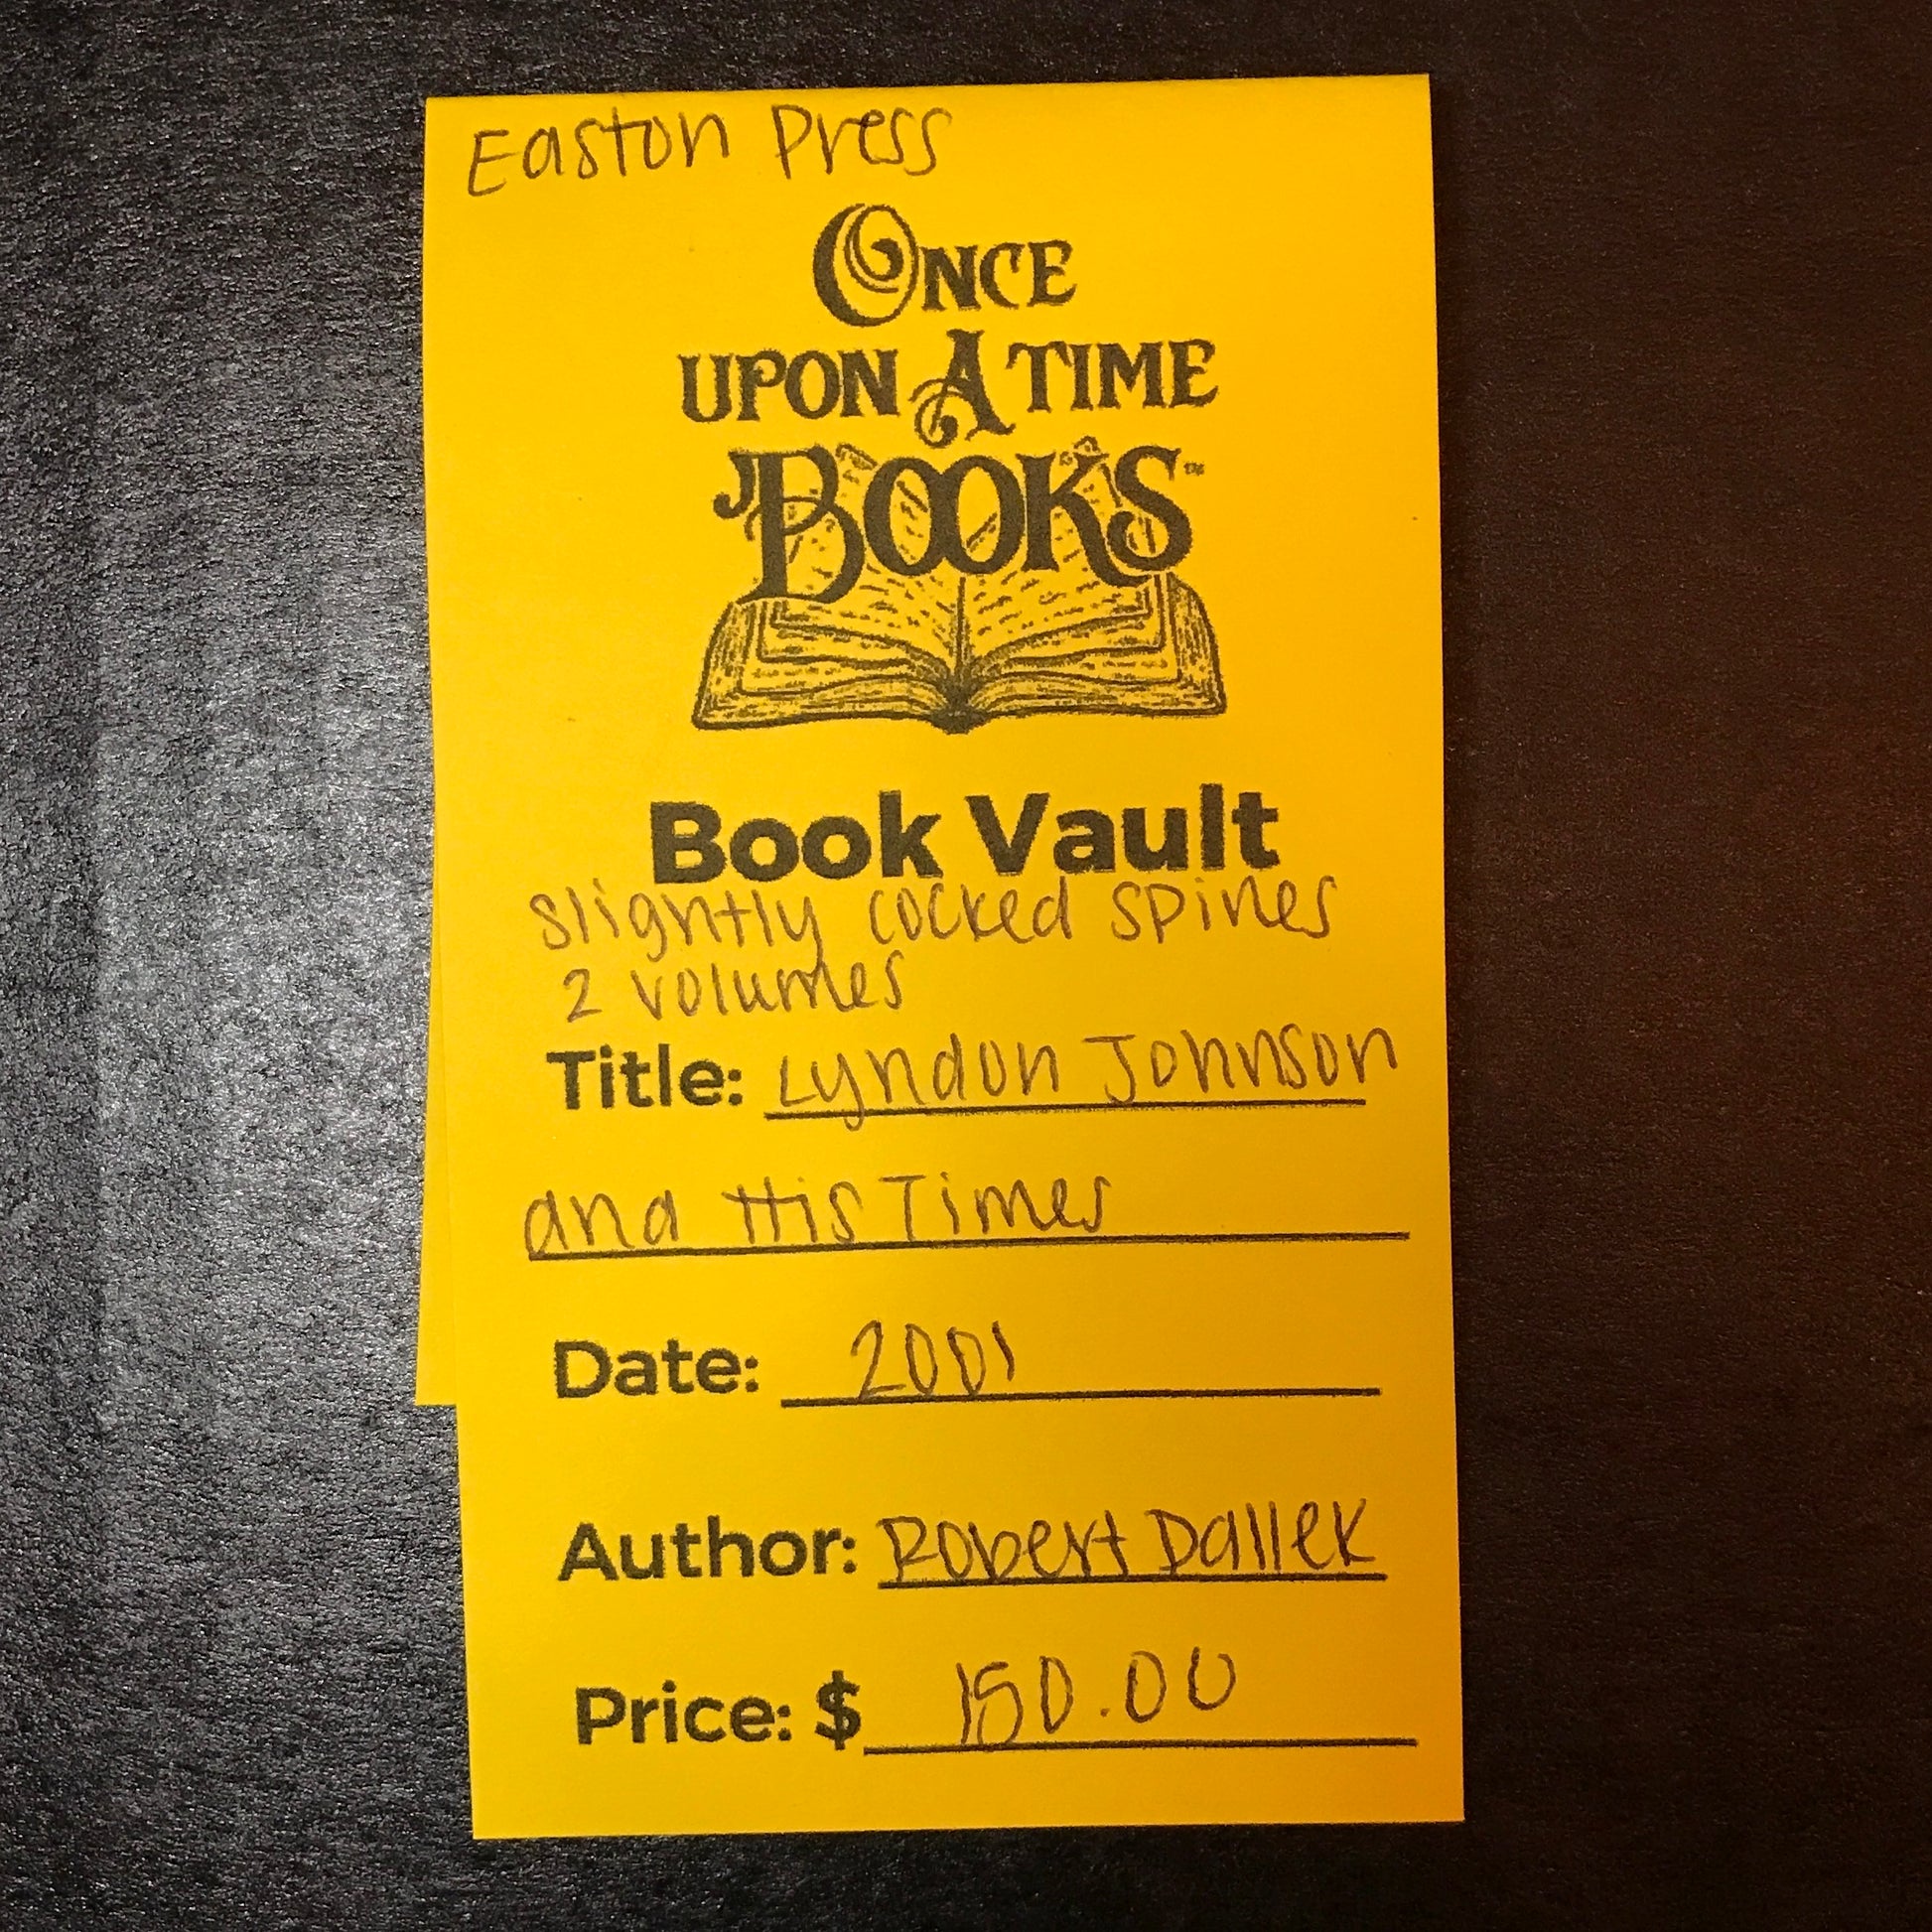 Easton Press
ONCE
UPON A TIME
BOOKS™
Book Vault
slightly cocked spines
2 volumes
Title: Lyndon Johnson
and His Times
Date: 2001
Author: Robert Dallek
Price: $ 150.00